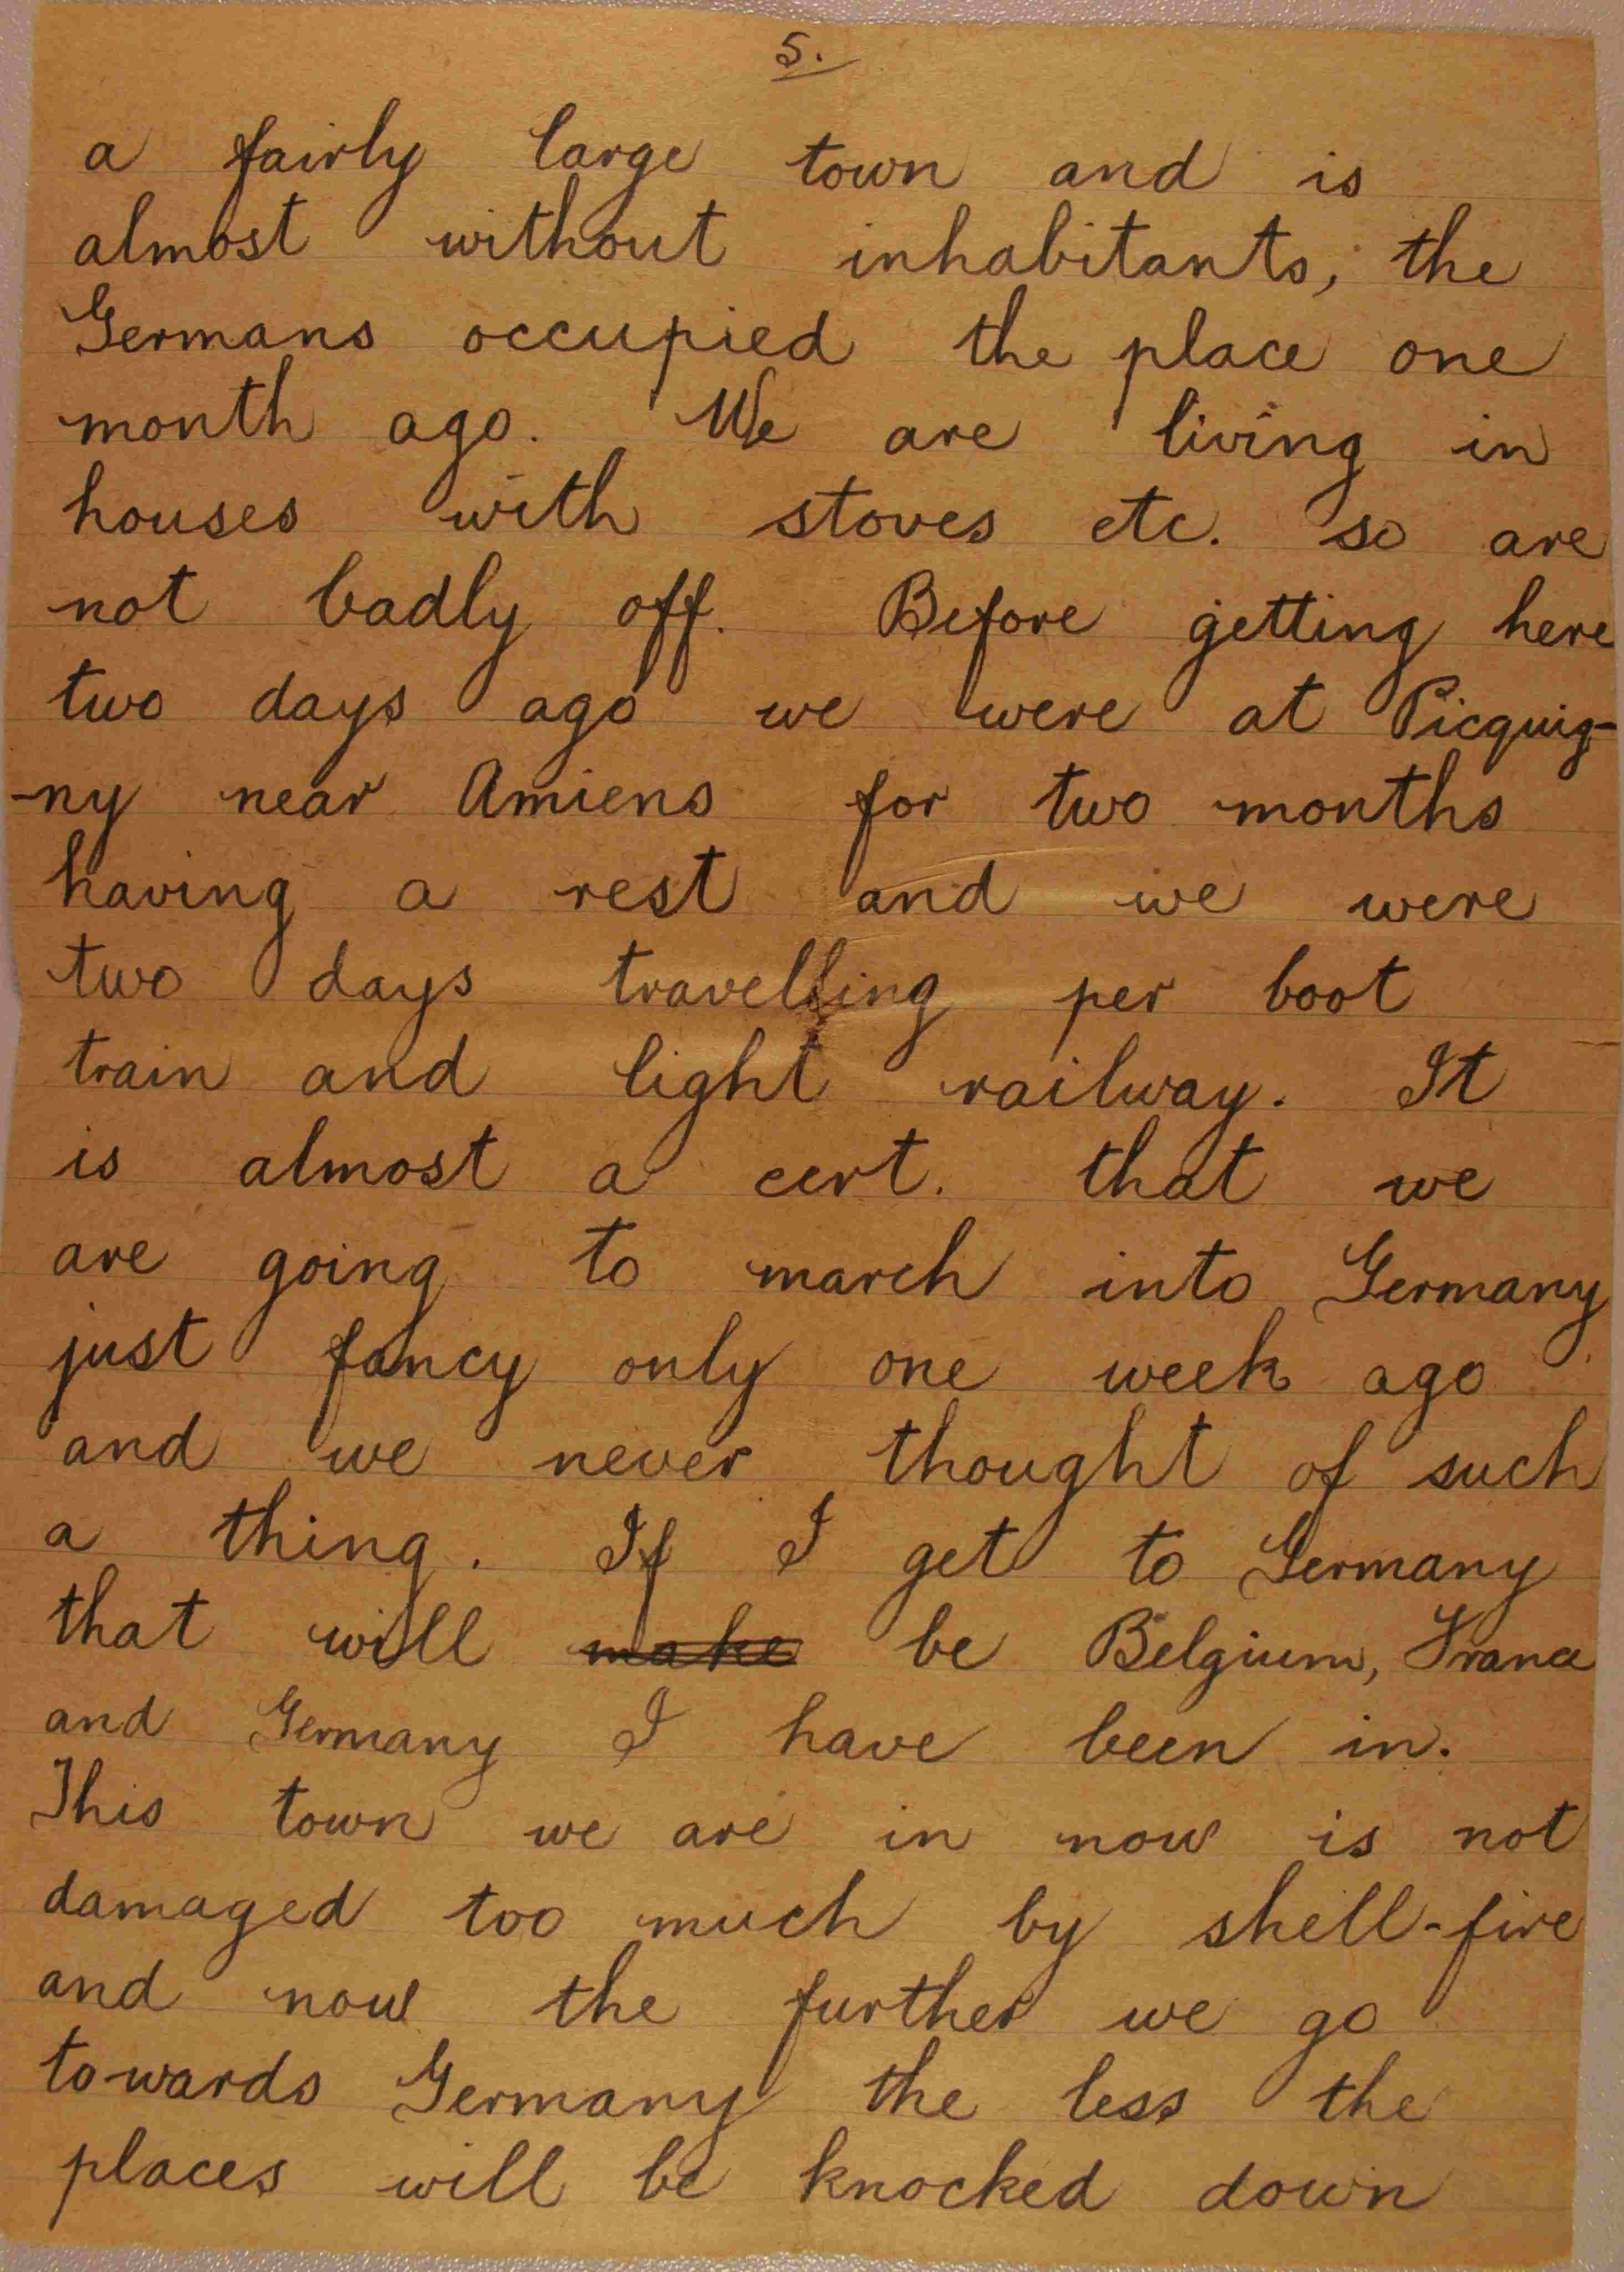 5.
a fairly large town and is
almost without inhabitants, the
Germans occupied the place one
month ago. We are living in
houses with stoves etc. so are
not badly off. Before getting here
two days ago we were at Picquig-
-ny near Amiens for two months
having a rest and we were
two days travelling per boot
train and light railway. It
is almost a cert. that we
are going to march into Germany
just fancy only one week ago
and we never thought of such
a thing. If I get to Germany
that will make be Belgium, France
and Germany I have been in.
This town we are in now is not
damaged too much by shell-fire
and now the further we go
towards Germany the less the
places will be knocked down